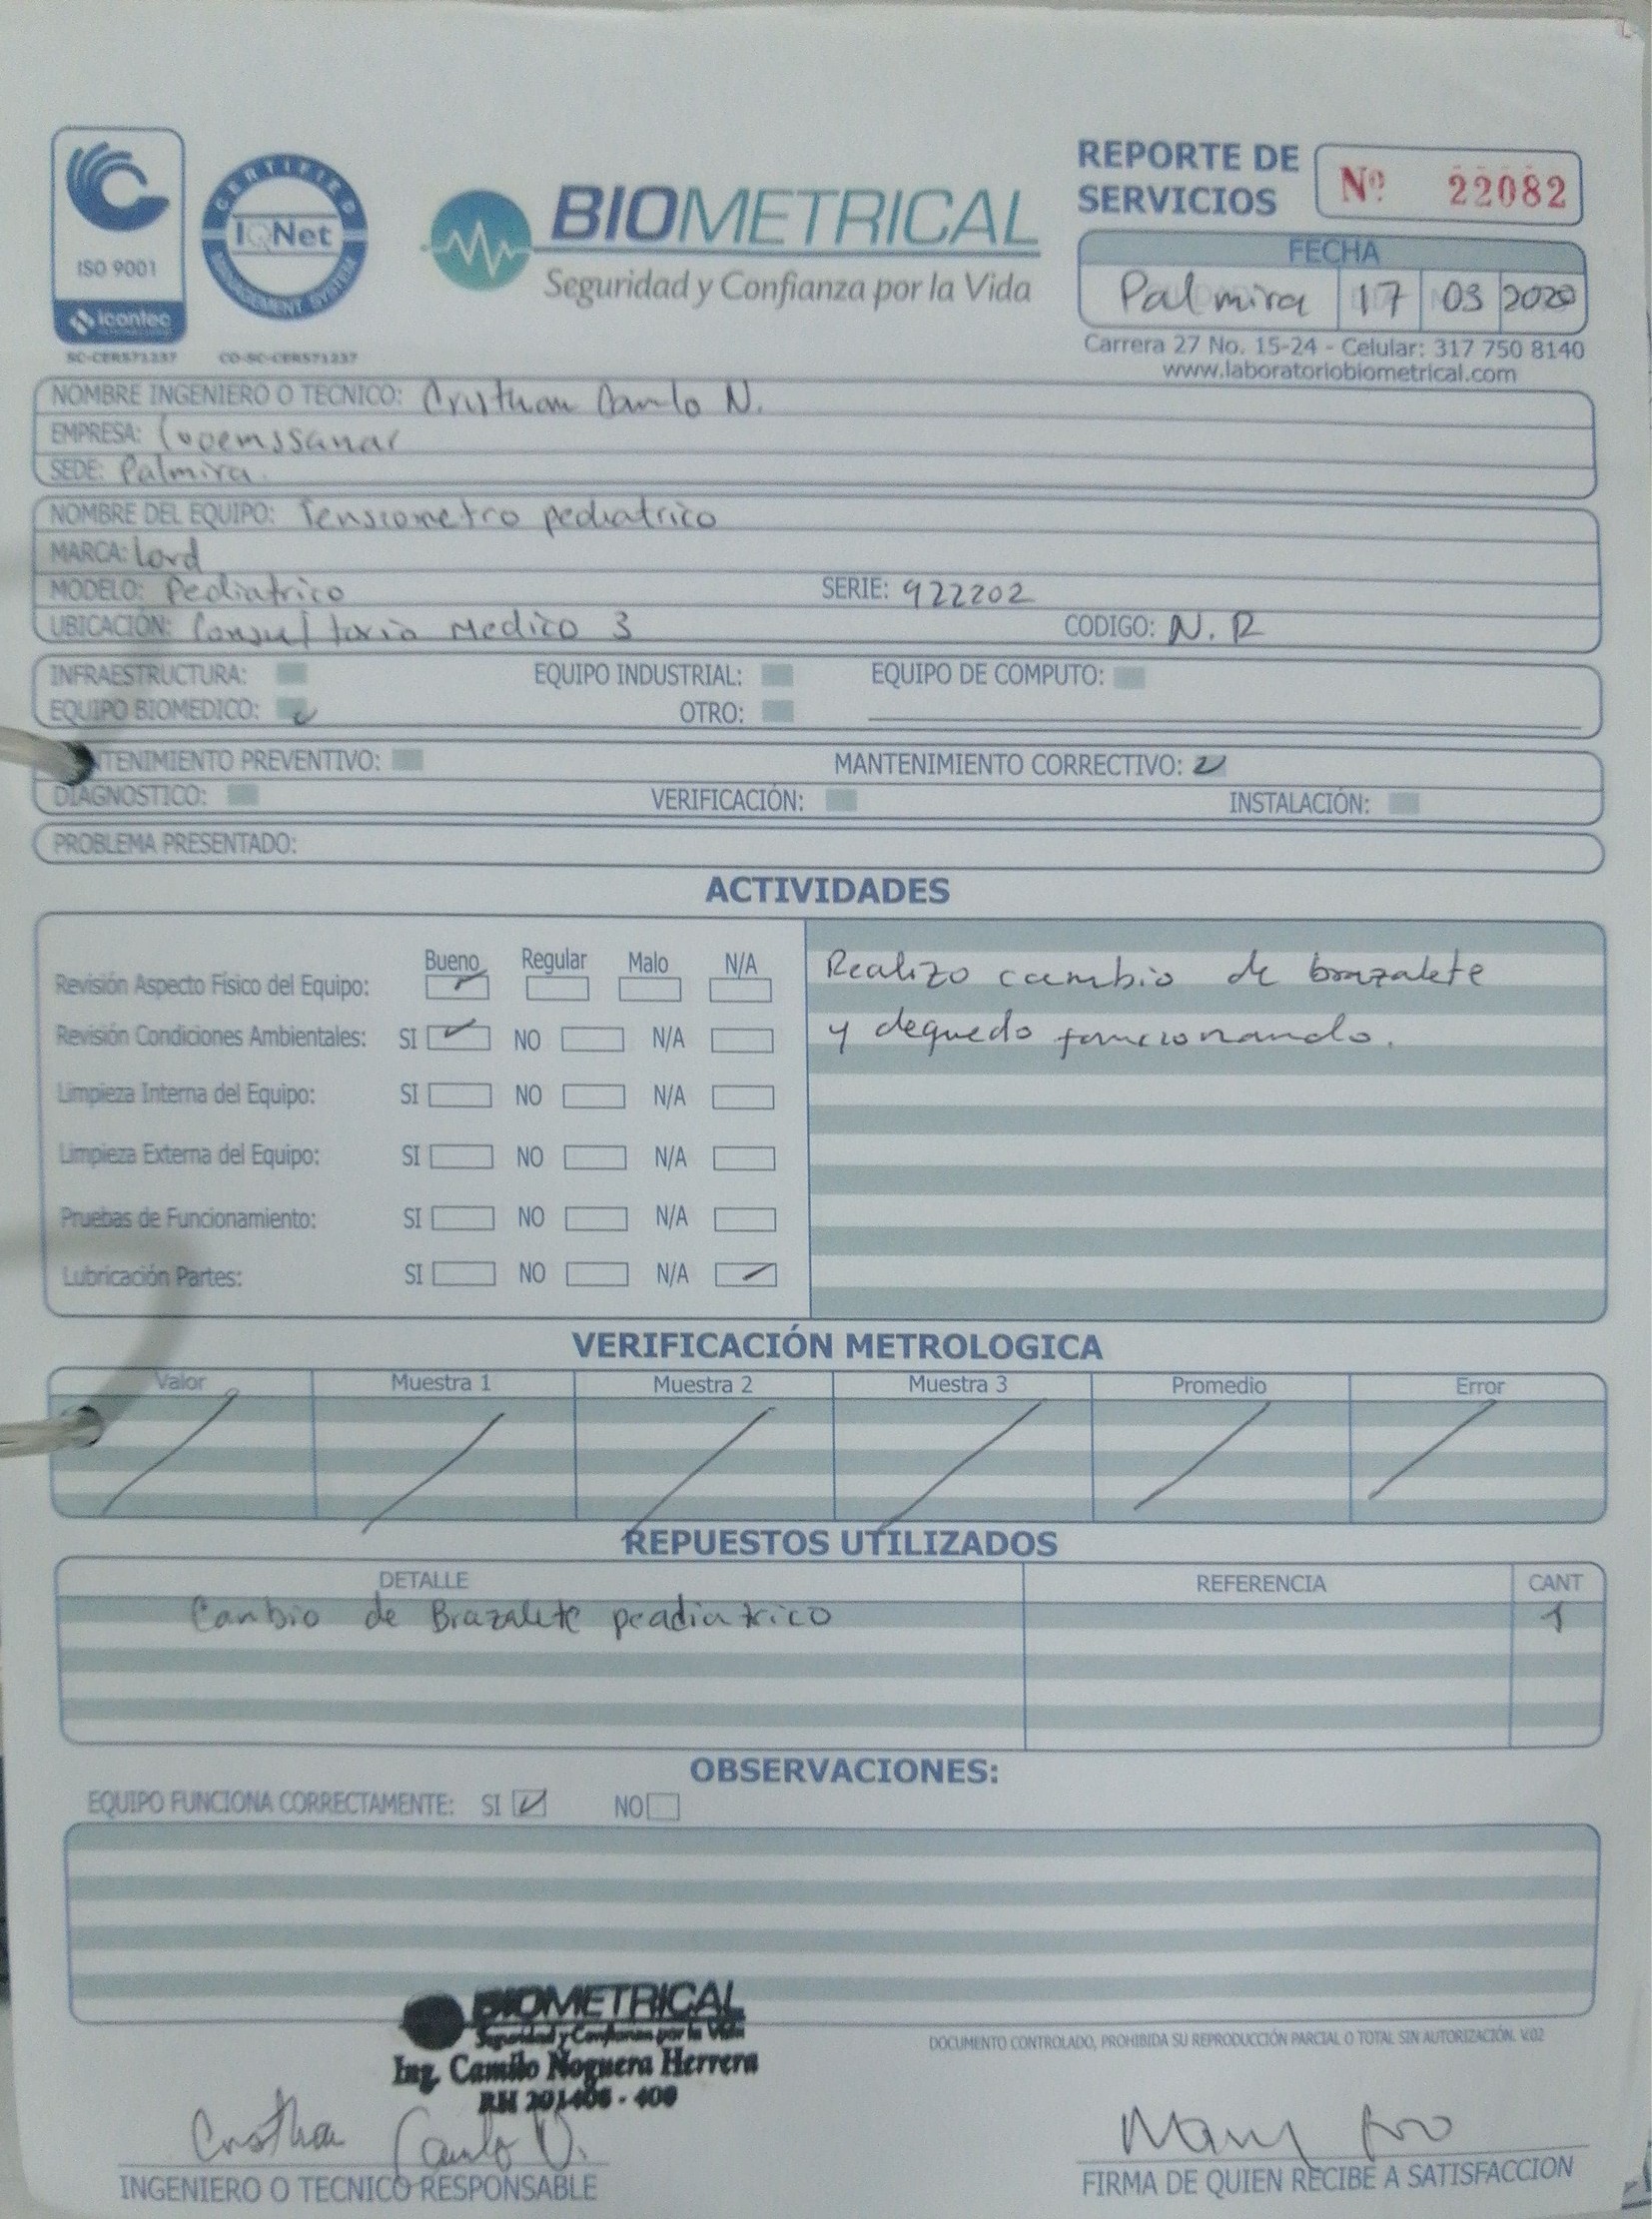 REPORTE DE
SERVICIOS
Nº 22082
CERTIFIED
IQNet
MANAGEMENT SYSTEM
ISO 9001
icontec
SC-CER571237
CO-SC-CER571237
BIOMETRICAL
Seguridad y Confianza por la Vida
FECHA
Palmira 17 03 2020
Carrera 27 No. 15-24 - Celular: 317 750 8140
www.laboratoriobiometrical.com
NOMBRE INGENIERO O TECNICO: Cristhian Camilo N.
EMPRESA: Cooemssanar
SEDE: Palmira.
NOMBRE DEL EQUIPO: Tensiometro pediatrico
MARCA: Lord
MODELO: Pediatrico SERIE: 922202
UBICACIÓN: Consultorio Medico 3 CODIGO: N.R
INFRAESTRUCTURA: EQUIPO INDUSTRIAL: EQUIPO DE COMPUTO:
EQUIPO BIOMEDICO: OTRO:
NTENIMIENTO PREVENTIVO: MANTENIMIENTO CORRECTIVO:
DIAGNOSTICO: VERIFICACIÓN: INSTALACIÓN:
PROBLEMA PRESENTADO:
ACTIVIDADES
Bueno Regular Malo N/A
Revisión Aspecto Físico del Equipo:
Revisión Condiciones Ambientales: SI NO N/A
Limpieza Interna del Equipo: SI NO N/A
Limpieza Externa del Equipo: SI NO N/A
Pruebas de Funcionamiento: SI NO N/A
Lubricación Partes: SI NO N/A
Realizo cambio de brazalete
y dequedo funcionando.
VERIFICACIÓN METROLOGICA
Valor Muestra 1 Muestra 2 Muestra 3 Promedio Error
REPUESTOS UTILIZADOS
DETALLE REFERENCIA CANT
Cambio de Brazalete peadiatrico 1
OBSERVACIONES:
EQUIPO FUNCIONA CORRECTAMENTE: SI NO
BIOMETRICAL
Seguridad y Confianza por la Vida
Ing. Camilo Noguera Herrera
RH 201406 - 400
DOCUMENTO CONTROLADO, PROHIBIDA SU REPRODUCCIÓN PARCIAL O TOTAL SIN AUTORIZACIÓN. V.02
INGENIERO O TECNICO RESPONSABLE
FIRMA DE QUIEN RECIBE A SATISFACCION